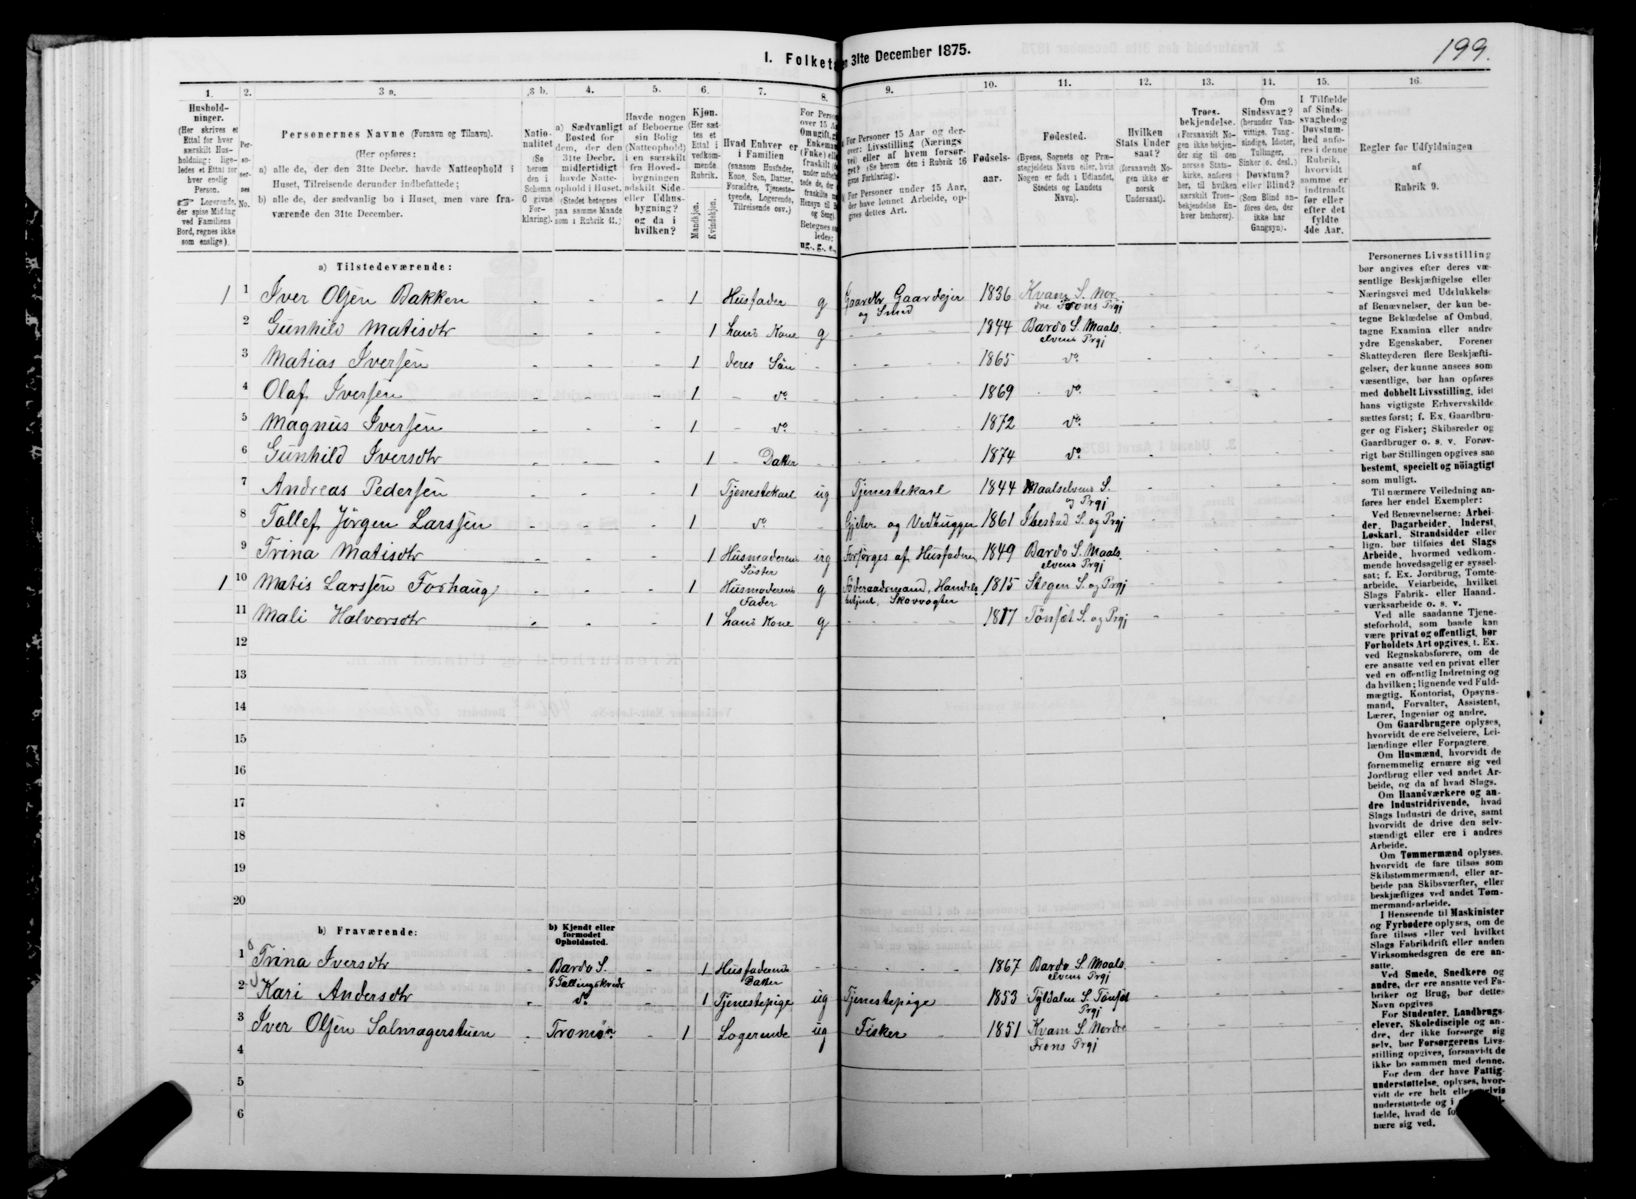 199.
I. Folketæ
en 31te December 1875.
1. 2. 3 a. 3 b. 4. 5. 6. 7. 8. 9. 10. 11. 12. 13. 14. 15. 16.
Hushold-
ninger.
(Her skrives et
Ettal for hver
særskilt Hus-
holdning; lige-
ledes et Ettal for
hver enslig
Person.
Logerende,
der spise Middag
ved Familiens
Bord, regnes ikke
som enslige).
Per-
so-
ner-
nes
No.
Personernes Navne (Fornavn og Tilnavn).
(Her opføres:
a) alle de, der den 31te Decbr. havde Natteophold i
Huset, Tilreisende derunder indbefattede;
b) alle de, der sædvanlig bo i Huset, men vare fra-
værende den 31te December.
Natio-
nalitet
(Se
herom
den i
Schema
C givne
For-
klaring).
a) Sædvanligt
Bosted for
dem, der den
31te Decbr.
midlertidigt
havde Natte-
ophold i Huset.
(Stedet betegnes
paa samme Maade
som i Rubrik 11.)
Havde nogen
af Beboerne
sin Bolig
(Natteophold)
i en særskilt
fra Hoved-
bygningen
adskilt Side-
eller Udhus-
bygning?
og da i
hvilken?
Kjøn.
(Her sæt-
tes et
Ettal i
vedkom-
mende
Rubrik.
Mandkjøn.
Kvindekjøn.
Hvad Enhver er
i Familien
(saasom Husfader,
Kone, Søn, Datter,
Forældre, Tjeneste-
tyende, Logerende,
Tilreisende osv.)
For Personer 15 Aar og der-
over: Livsstilling (Nærings
vei) eller af hvem forsør-
get? (Se herom den i Rubrik 16
givne Forklaring).
For Personer under 15 Aar,
der have lønnet Arbeide, op-
gives dettes Art.
Fødsels-
aar.
Fødested.
(Byens, Sognets og Præ-
stegjeldets Navn eller, hvis
Nogen er født i Udlandet,
Stedets og Landets
Navn).
Hvilken
Stats Under
saat?
(forsaavidt No-
gen ikke er
norsk
Undersaat).
Troes-
bekjendelse.
(Forsaavidt No-
gen ikke bekjen-
der sig til den
norske Stats-
kirke, anføres
her, til hvilken
særskilt Troes-
bekjendelse En-
hver henhører).
Om
Sindssvag?
(herunder Van-
vittige, Tung-
sindige, Idioter,
Tullinger,
Sinker o. desl.)
Døvstum?
eller Blind?
(Som Blind an-
føres den, der
ikke har
Gangsyn).
I Tilfælde
af Sinds-
svaghed og
Døvstum-
hed anfø-
res i denne
Rubrik,
hvorvidt
samme er
indtraadt
før eller
efter det
fyldte
4de Aar.
Regler for Udfyldningen
af
Rubrik 9.
a) Tilstedeværende:
1 1 Iver Olsen Bakken - - - 1 Husfader g Gaardbr Gaardejer og Smed 1836 Kvam S. Nordre Frons Prgj
2 Gunhild Matisdtr - - - 1 hans Kone g - - 1844 Bardo S. Maalselvens Prgj
3 Matias Iversen - - - 1 deres Sön - - - 1865 do
4 Olaf Iversen - - - 1 - do - - - 1869 do
5 Magnus Iversen - - - 1 - do - - - 1872 do
6 Gunhild Iversdtr - - - 1 - Datter - - - 1874 do
7 Andreas Pedersen - - - 1 Tjenestekarl ug Tjenestekarl 1844 Maalselvens S. og Prgj
8 Tollef Jörgen Larssen - - - 1 do - Gjeter og Vedhugger 1861 Ibestad S. og Prgj
9 Trina Matisdtr - - - 1 Husmoderens Söster ug Forsörges af Husfaderen 1849 Bardo S. Maalselvens Prgj
1 10 Matis Larssen Forhaug - - - 1 Husmoderens Fader g Föderaadsmand, Handelsbetjent, Skovvogter 1815 Stegen S. og Prgj
11 Mali Halvorsdtr - - - 1 hans Kone g - - 1817 Tönset S. og Prgj
12
13
14
15
16
17
18
19
20
b) Fraværende:
b) Kjendt eller
formodet
Opholdssted.
1 Trina Iversdtr Bardo S. - 1 Husfaderens Datter - - - 1867 Bardo S. Maalselvens Prgj
2 Kari Andersdtr do - 1 Tjenestepige ug Tjenestepige 1853 Tyldalen S. Tönset Prgj
3 Iver Olsen Salmagerstuen - Tromsö - 1 Logerende ug Fisker 1851 Kvam S. Nordre Frons Prgj
4
5
6
Personernes Livsstilling
bør angives efter deres væ-
sentlige Beskjæftigelse eller
Næringsvei med Udelukkelse
af Benævnelser, der kun be-
tegne Beklædelse af Ombud,
tagne Examina eller andre
ydre Egenskaber. Forener
Skatteyderen flere Beskjæfti-
gelser, der kunne ansees som
væsentlige, bør han opføres
med dobbelt Livsstilling, idet
hans vigtigste Erhvervskilde
sættes først; f. Ex. Gaardbru-
ger og Fisker; Skibsreder og
Gaardbruger o. s. v. Forøv-
rigt bør Stillingen opgives saa
bestemt, specielt og nöiagtigt
som muligt.
Til nærmere Veiledning an-
føres her endel Exempler:
Ved Benævnelserne: Arbei-
der, Dagarbeider, Inderst,
Løskarl, Strandsidder eller
lign. bør tilføies det Slags
Arbeide, hvormed vedkom-
mende hovedsagelig er syssel-
sat; f. Ex. Jordbrug, Tomte-
arbeide, Veiarbeide, hvilket
Slags Fabrik- eller Haand-
værksarbeide o. s. v.
Ved alle saadanne Tjene-
steforhold, som baade kan
være privat og offentligt, bør
Forholdets Art opgives, t. Ex.
ved Regnskabsførere, om de
ere ansatte ved en privat eller
ved en offentlig Indretning og
da hvilken; lignende ved Fuld-
mægtig, Kontorist, Opsyns-
mand, Forvalter, Assistent,
Lærer, Ingeniør og andre.
Om Gaardbrugere oplyses,
hvorvidt de ere Selveiere, Lei-
lændinge eller Forpagtere.
Om Husmænd, hvorvidt de
fornemmelig ernære sig ved
Jordbrug eller ved andet Ar-
beide, og da af hvad Slags.
Om Haandværkere og an-
dre Industridrivende, hvad
Slags Industri de drive, samt
hvorvidt de drive den selv-
stændigt eller ere i andres
Arbeide.
Om Tømmermænd oplyses,
hvorvidt de fare tilsøs som
Skibstømmermænd, eller ar-
beide paa Skibsværfter, eller
beskjæftiges ved andet Tøm-
mermandsarbeide.
I Henseende til Maskinister
og Fyrbødere oplyses, om de
fare tilsøs eller ved hvilket
Slags Fabrikdrift eller anden
Virksomhedsgren de ere an-
satte.
Ved Smede, Snedkere og
andre, der ere ansatte ved Fa-
briker og Brug, bør dettes
Navn opgives
For Studenter, Landbrugs-
elever, Skoledisciple og an-
dre, der ikke forsørge sig
selv, bør Forsørgerens Livs-
stilling opgives, forsaavidt de
ikke bo sammen med denne.
For dem, der have Fattig-
understøttelse, oplyses, hvor-
vidt de ere helt eller delvis
understøttede og i
fælde, hvad de
nære sig ved.